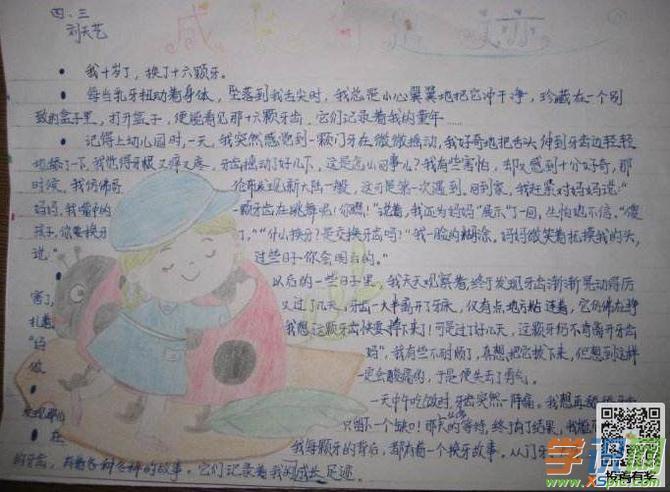 四、三
刘天艺
成长的足迹
我十岁了，换了十六颗牙。
每当乳牙扭动着身体，坠落到我舌尖时，我总是小心翼翼地把它冲干净，珍藏在一个别
致的盒子里，打开盒子，便能看见那十六颗牙齿，它们记录着我的童年……
记得上幼儿园时，一天，我突然感觉到一颗门牙在微微摇动，我好奇地把舌头伸到牙齿边轻轻
地舔了一下，我觉得牙根又痒又疼，牙齿摇动了好几下，这是怎么回事儿？我有些害怕，却又感到十分好奇，那
时候，我仿佛哥伦布发现新大陆一般，这可是第一次遇到，回到家，我赶紧对妈妈说："
妈妈，我嘴中的一颗牙齿在跳舞呢！你瞧！"说着，我还为妈妈"展示"了一回，生怕她不信。"傻
孩子，你要换牙了，""什么换牙？是交换牙齿吗？"我一脸的糊涂，妈妈微笑着抚摸我的头，
说："过些日子你会明白的。"
以后的一些日子里，我天天观察着，终于发现牙齿渐渐晃动得厉
害了，又过了几天，牙齿一大半离开了牙床，仅有点地方粘连着，它仿佛在挣
扎着，我想，这颗牙齿快要掉下来了！可过了好几天，这颗牙仍不肯离开牙齿
"妈妈"，我有些不耐烦了，真想把它拔下来，但想到这样
做一定会酸痛的，于是便失去了勇气。
一天中午吃饭时，牙齿突然一阵痛。我想
发现那 只留下一个缺口！那天的等待，终于有了结果，我
在我每颗牙的背后，都有着一个换牙故事。从门牙
的牙齿，有着各种各样的故事。它们记录着我的成长足迹。
学科网
www.xspic.com